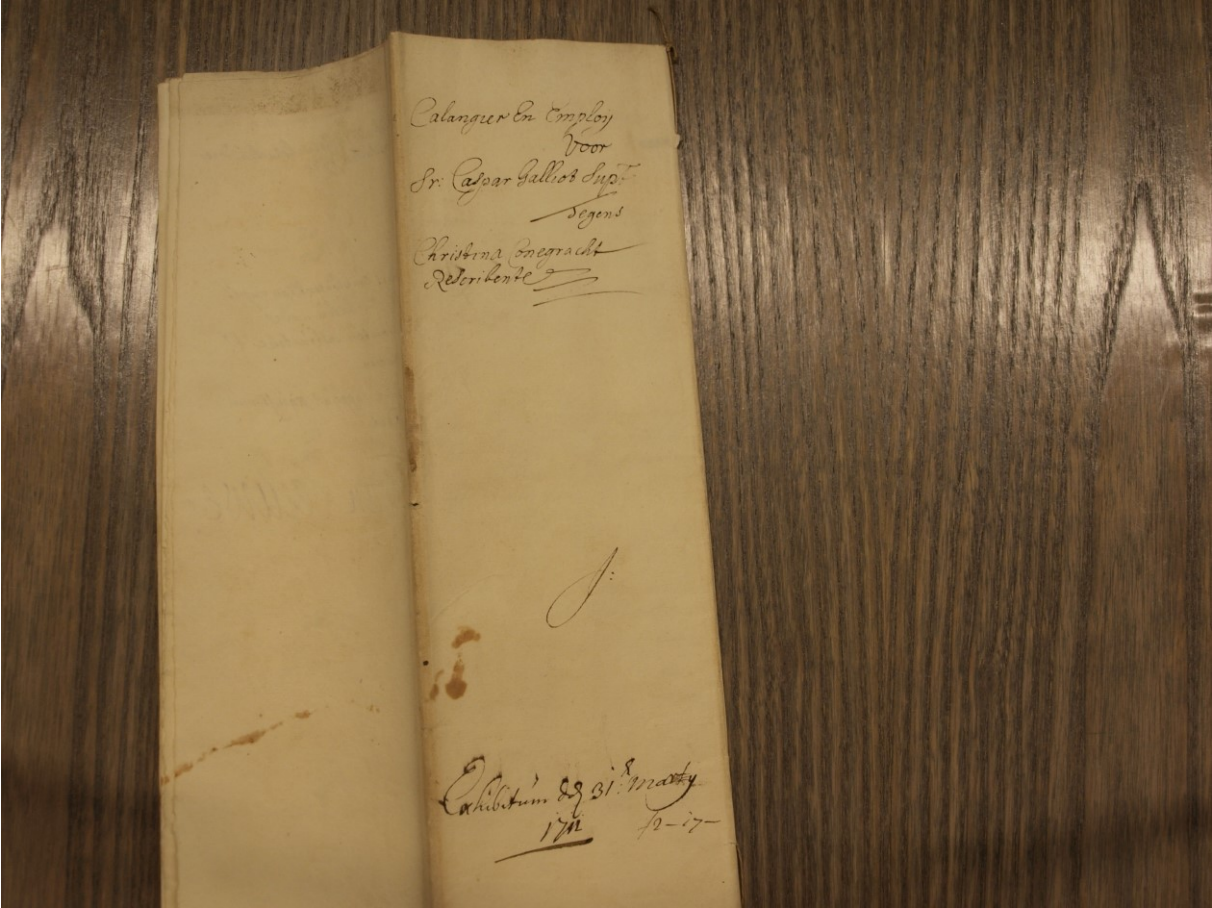 Calangier En Employ
voor
Sr: Caspar Galliot Supt
Tegens
Christina Conegracht
Rescribente
Exhibitum den 31: marty
1711 f2-17-